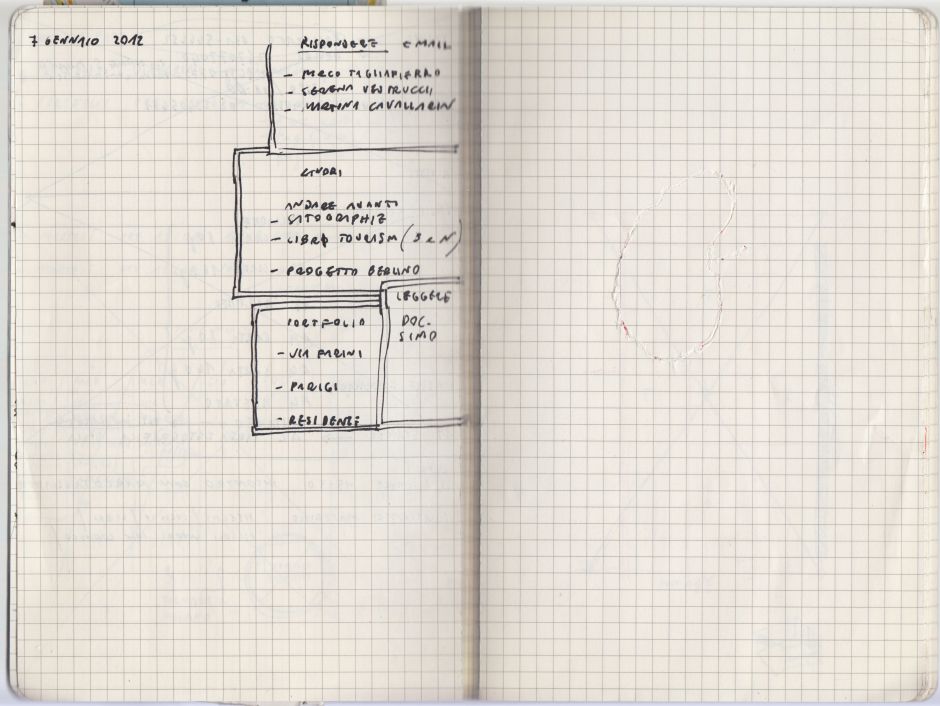 7 GENNAIO 2012
RISPONDERE EMAIL
- MARCO TAGLIAFIERRO
- SERENA VESTRUCCI
- MARTINA CAVALLARIN
ANDARE AVANTI
- SITOGRAPHIE
- LIBRO TOURISM (S e N)
- PROGETTO BERLINO
LEGGERE
DOC.
SIMO
PORTFOLIO
- VIA FARINI
- PARIGI
- RESIDENZE